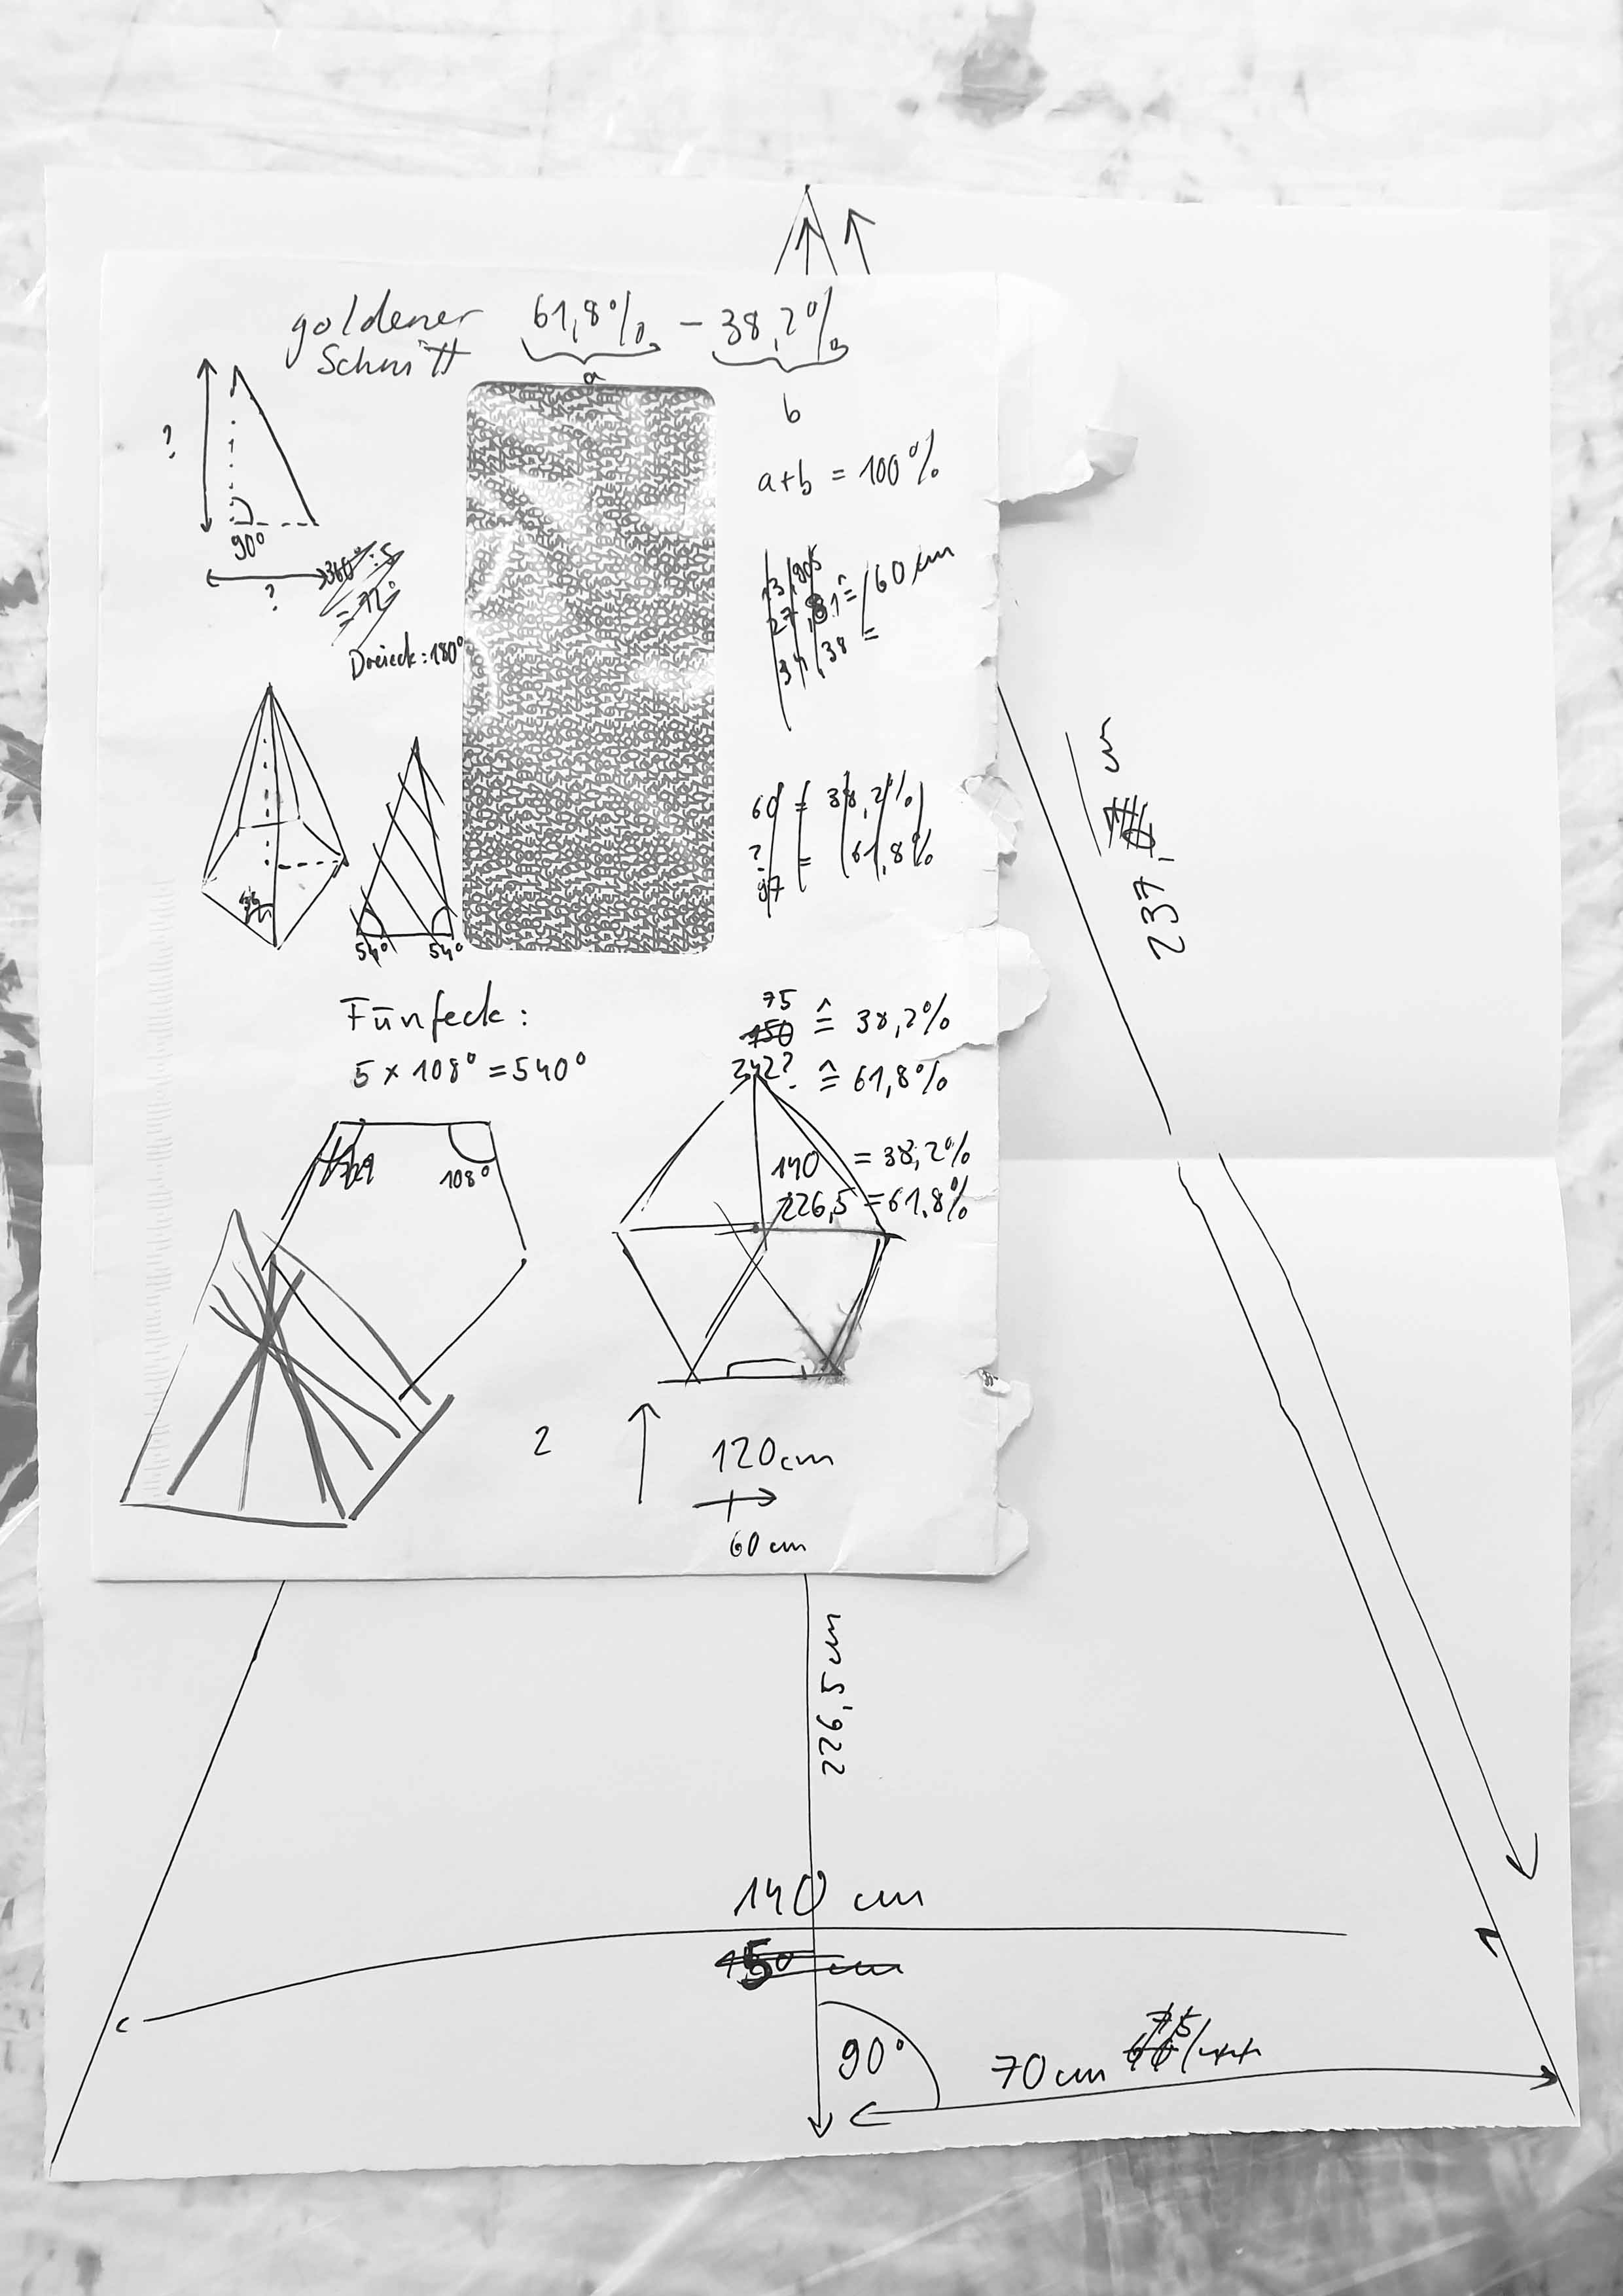 goldener 61,8% - 38,2%
Schnitt
a
b
?
90°
?
360° : 5
= 72°
a+b = 100%
Dreieck: 180°
60 cm
60 = 38,2%
? = 61,8%
97
54° 54°
Fünfeck:
5 x 108° = 540°
75
150 ≙ 38,2%
242? ≙ 61,8%
108°
140 = 38,2%
226,5 = 61,8%
2
120cm
60 cm
237,- cm
226,5 cm
140 cm
150 cm
90°
70 cm
75